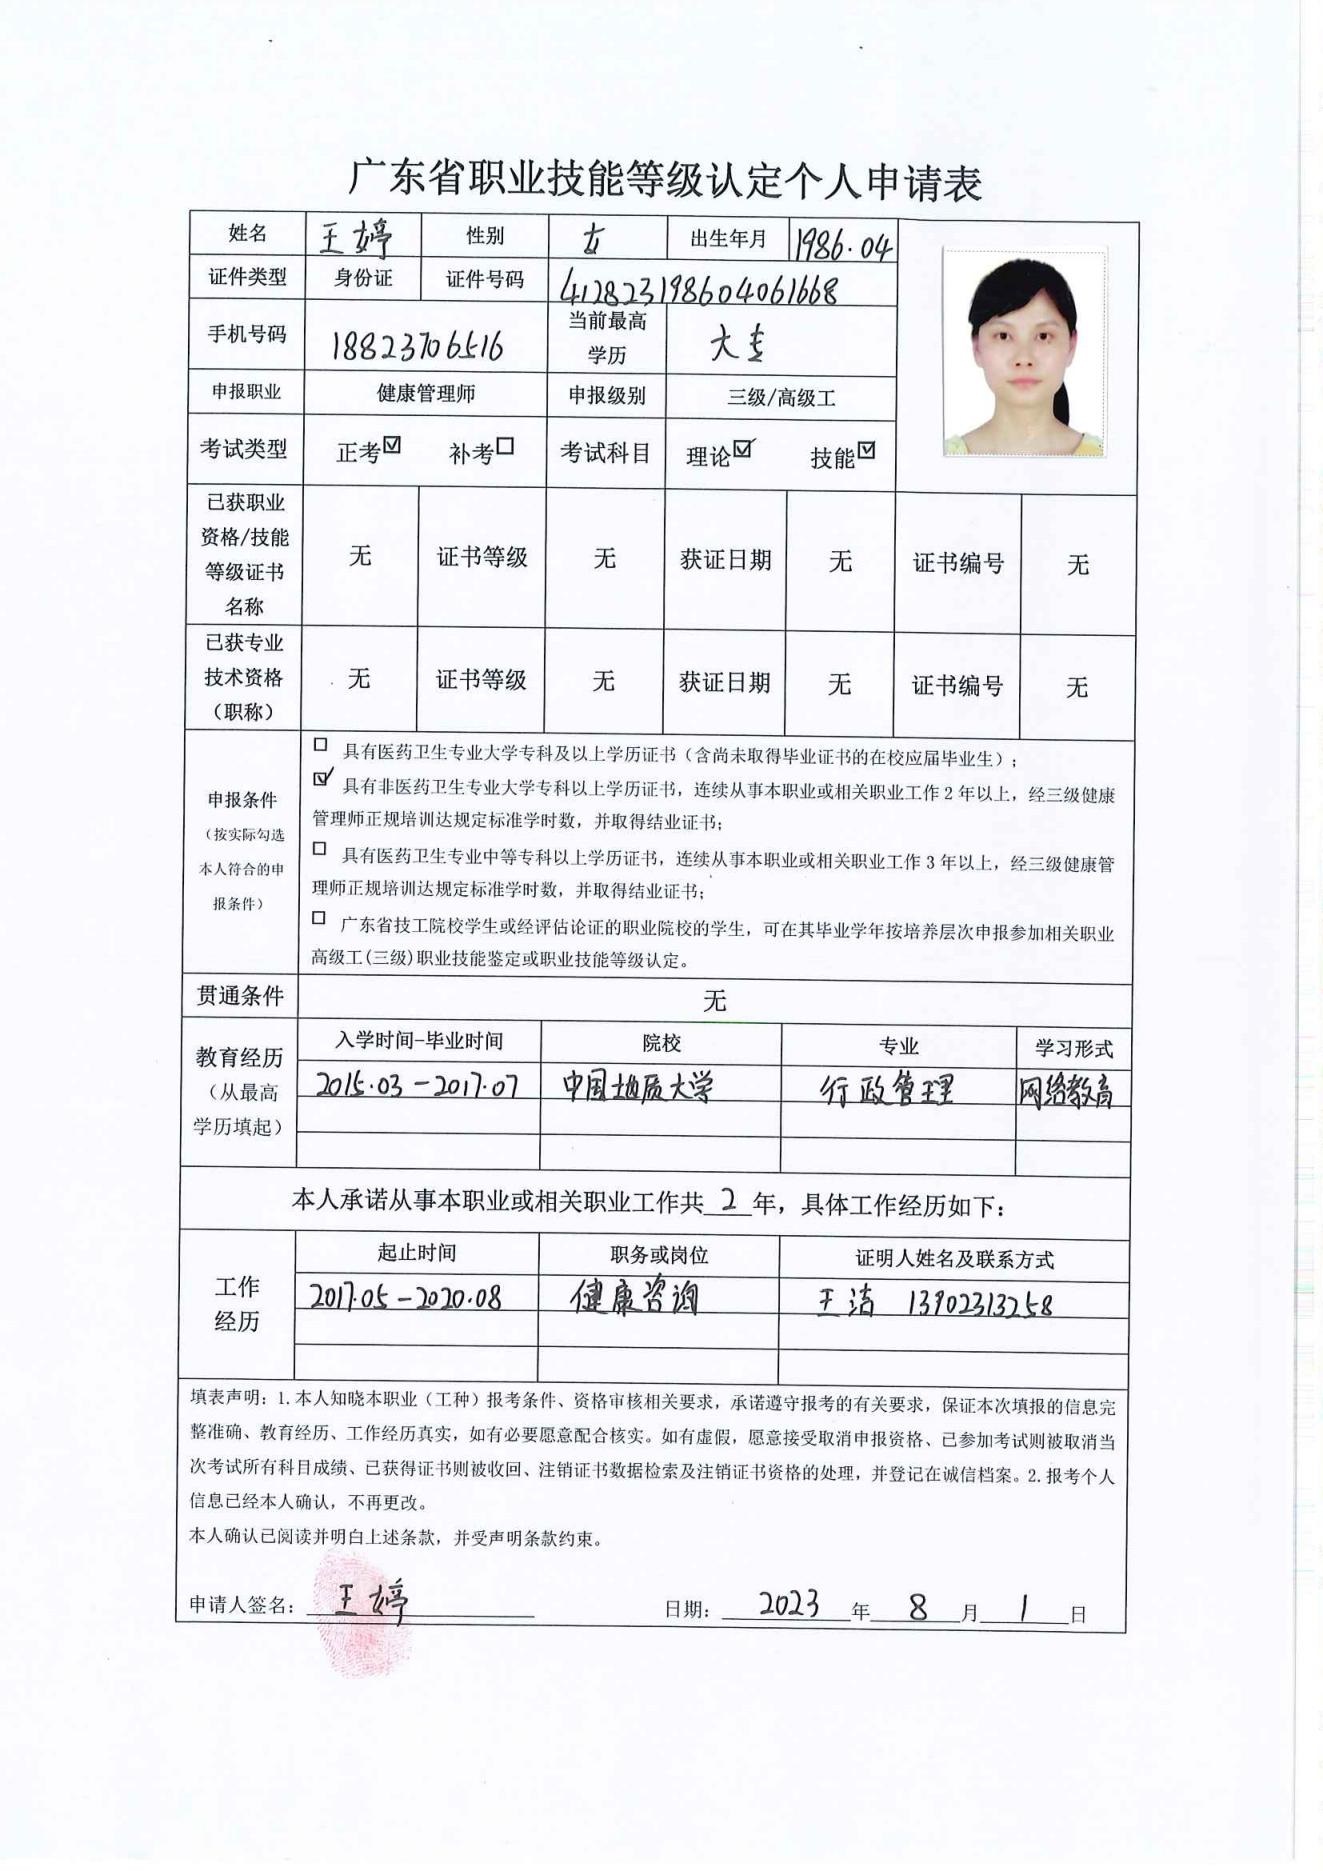 广东省职业技能等级认定个人申请表
姓名 王婷 性别 女 出生年月 1986.04
证件类型 身份证 证件号码 412823198604061668
手机号码 18823706516 当前最高学历 大专
申报职业 健康管理师 申报级别 三级/高级工
考试类型 正考☑ 补考□ 考试科目 理论☑ 技能☑
已获职业
资格/技能
等级证书
名称
无 证书等级 无 获证日期 无 证书编号 无
已获专业
技术资格
（职称）
无 证书等级 无 获证日期 无 证书编号 无
申报条件
（按实际勾选
本人符合的申
报条件）
□ 具有医药卫生专业大学专科及以上学历证书（含尚未取得毕业证书的在校应届毕业生）；
☑ 具有非医药卫生专业大学专科以上学历证书，连续从事本职业或相关职业工作2年以上，经三级健康
管理师正规培训达规定标准学时数，并取得结业证书；
□ 具有医药卫生专业中等专科以上学历证书，连续从事本职业或相关职业工作3年以上，经三级健康管
理师正规培训达规定标准学时数，并取得结业证书；
□ 广东省技工院校学生或经评估论证的职业院校的学生，可在其毕业学年按培养层次申报参加相关职业
高级工(三级)职业技能鉴定或职业技能等级认定。
贯通条件 无
教育经历
（从最高
学历填起）
入学时间-毕业时间 院校 专业 学习形式
2015.03-2017.07 中国地质大学 行政管理 网络教育
本人承诺从事本职业或相关职业工作共2年，具体工作经历如下：
工作
经历
起止时间 职务或岗位 证明人姓名及联系方式
2017.05-2020.08 健康咨询 王洁 13902313258
填表声明：1.本人知晓本职业（工种）报考条件、资格审核相关要求，承诺遵守报考的有关要求，保证本次填报的信息完
整准确、教育经历、工作经历真实，如有必要愿意配合核实。如有虚假，愿意接受取消申报资格、已参加考试则被取消当
次考试所有科目成绩、已获得证书则被收回、注销证书数据检索及注销证书资格的处理，并登记在诚信档案。2.报考个人
信息已经本人确认，不再更改。
本人确认已阅读并明白上述条款，并受声明条款约束。
申请人签名：王婷 日期：2023年8月1日